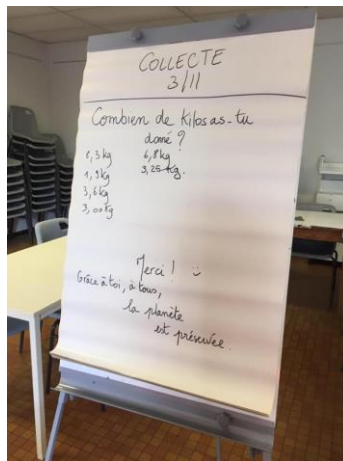 COLLECTE
3/11
Combien de kilos as-tu
donné ?
6,8kg
3,25 kg.
1,9kg
3,6kg
3,00kg
Merci !
Grâce à toi, à tous,
la planète
est préservée.